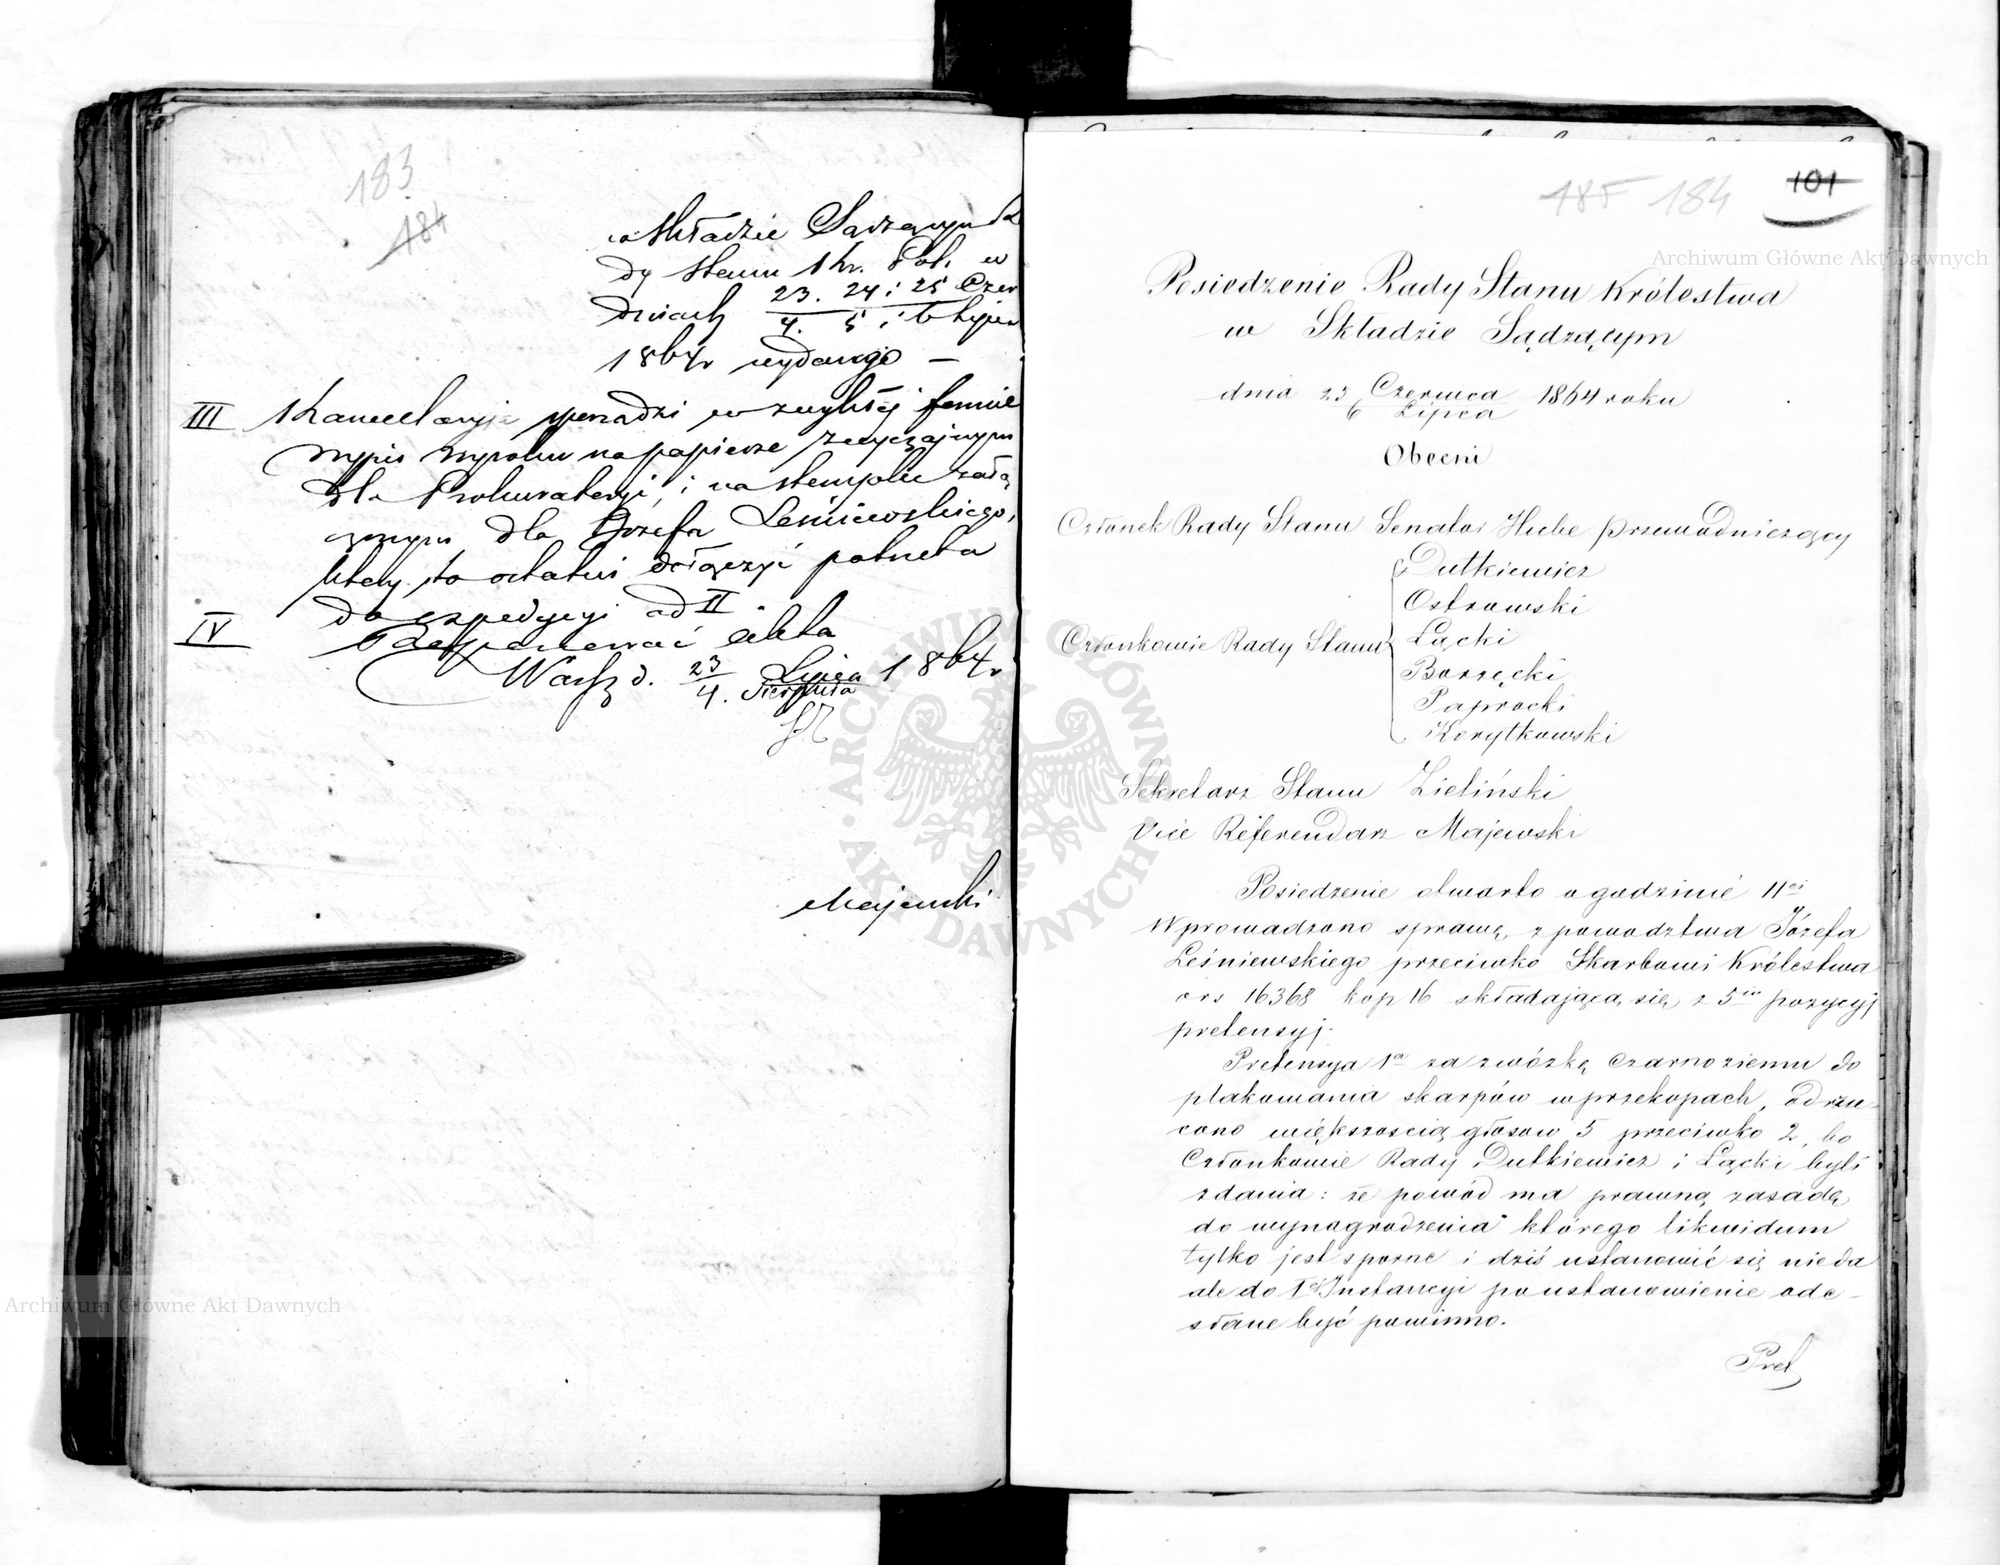 183
184
w Składzie Sądzącym Ra
dy Stanu Kr. Pol. w
dniach 23. 24 i 25 Czer
4. 5 i 6 Lipca
1864r wydanego —
III Kancellaryja sporządzi w zwykłéj formie
wypis wyroku na papierze zwyczajnym
dla Prokuratoryi, i na stemplu załą
czonym dla Józefa Leśniewskiego,
który to ostatni dołączyć potrzeba
do expedycyi ad II.
IV Odesłać akta
Warsz d. 23/4. Lipca/Sierpnia 1864r
Majewski
185 184 101
Posiedzenie Rady Stanu Królestwa
w Składzie Sądzącym
dnia 25 Czerwca / 6 Lipca 1864 roku
Obecni
Członek Rady Stanu Senator Hube przewodniczący
Dutkiewicz
Ostrowski
Członkowie Rady Stanu Łącki
Borzęcki
Paprocki
Korytkowski
Sekretarz Stanu Zieliński
Vice Referendarz Majewski
Posiedzenie otwarto o godzinie 11ej
Wprowadzono sprawę z powodztwa Józefa
Leśniewskiego przeciwko Skarbowi Królestwa
o rs 16368 kop 16 składającą się z 5iu pozycyj
pretensyj.
Pretensya 1a za zwózkę czarnoziemu do
plakowania skarpów w przekopach, odrzu-
cono większością głosow 5 przeciwko 2, bo
Członkowie Rady Dutkiewicz i Łącki byli
zdania: że powód ma prawną zasadę
do wynagrodzenia którego likwidum
tylko jest sporne i dziś ustanowić się nieda
ale do Iej Instancyi po ustanowienie ode-
słane być powinno.
Pret
Archiwum Główne Akt Dawnych
Archiwum Główne Akt Dawnych
ARCHIWUM GŁÓWNE AKT DAWNYCH